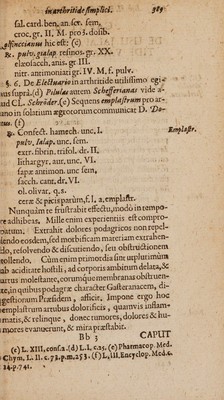 in arthritide simplici. 389
sal. card. ben. an. scr. sem.
croc. gr. II, M. pro 5. dosib.
hic est: (c)
&. pulv. gialap. resinos. gr. XX.
elzosacch. anis. gr. III
nitr. antimoniat. gr. IV. M. f. pulv.
§. 6. De Electuario in arthritide utilissimo egi-
mus supra. (d) Pilulas autem Schefferianas vide a-
pud CL. Schröder. (e) Sequens emplastrum pro ar-
cano in solatium ægrotorum communicat D. Do-
læus. (f)
Confect. hamech. unc. I. Emplastr.
pulv. Ialap. unc. sem.
extr. fibrin. trifol. dr. II.
lithargyr. aur. unc. VI.
sapæ antimon. unc sem,
sacch. cant. dr. VI.
ol. olivar. q. s.
ceræ & picis parùm, f. l. a. emplastr.
Nunquam te frustrabit effectu, modò in tempo-
re adhibeas. Mille enim experientiis est compro-
batum. Extrahit dolores podagricos non repel-
lendo eosdem, sed morbificam materiam extrahen-
do, resolvendo & discutiendo, seu obstructionem
tollendo. Cum enim primordia sint
ab aciditate hostili, ad corporis ambitum delata, &
artus molestante, eorumque membranas obstruen-
te, in quibus podagræ character Gasteranacem, di-
gestionis Præsidem, afficit. Impone ergo hoc
emplastrum artubus dolorificis, quamvis inflam-
matis, & relinque, donec tumores, dolores & hu-
mores evanuerunt, & mira præstabit.
Bb 3 CAPUT
(c) L. XIII. conf. 2. (d) L. I. c. 25. (e) Pharmacop. Med.
Chym. L. II. c. 72. p. m. 253. (f) L. III. Encyclop. Med. c.
14. p. 741.